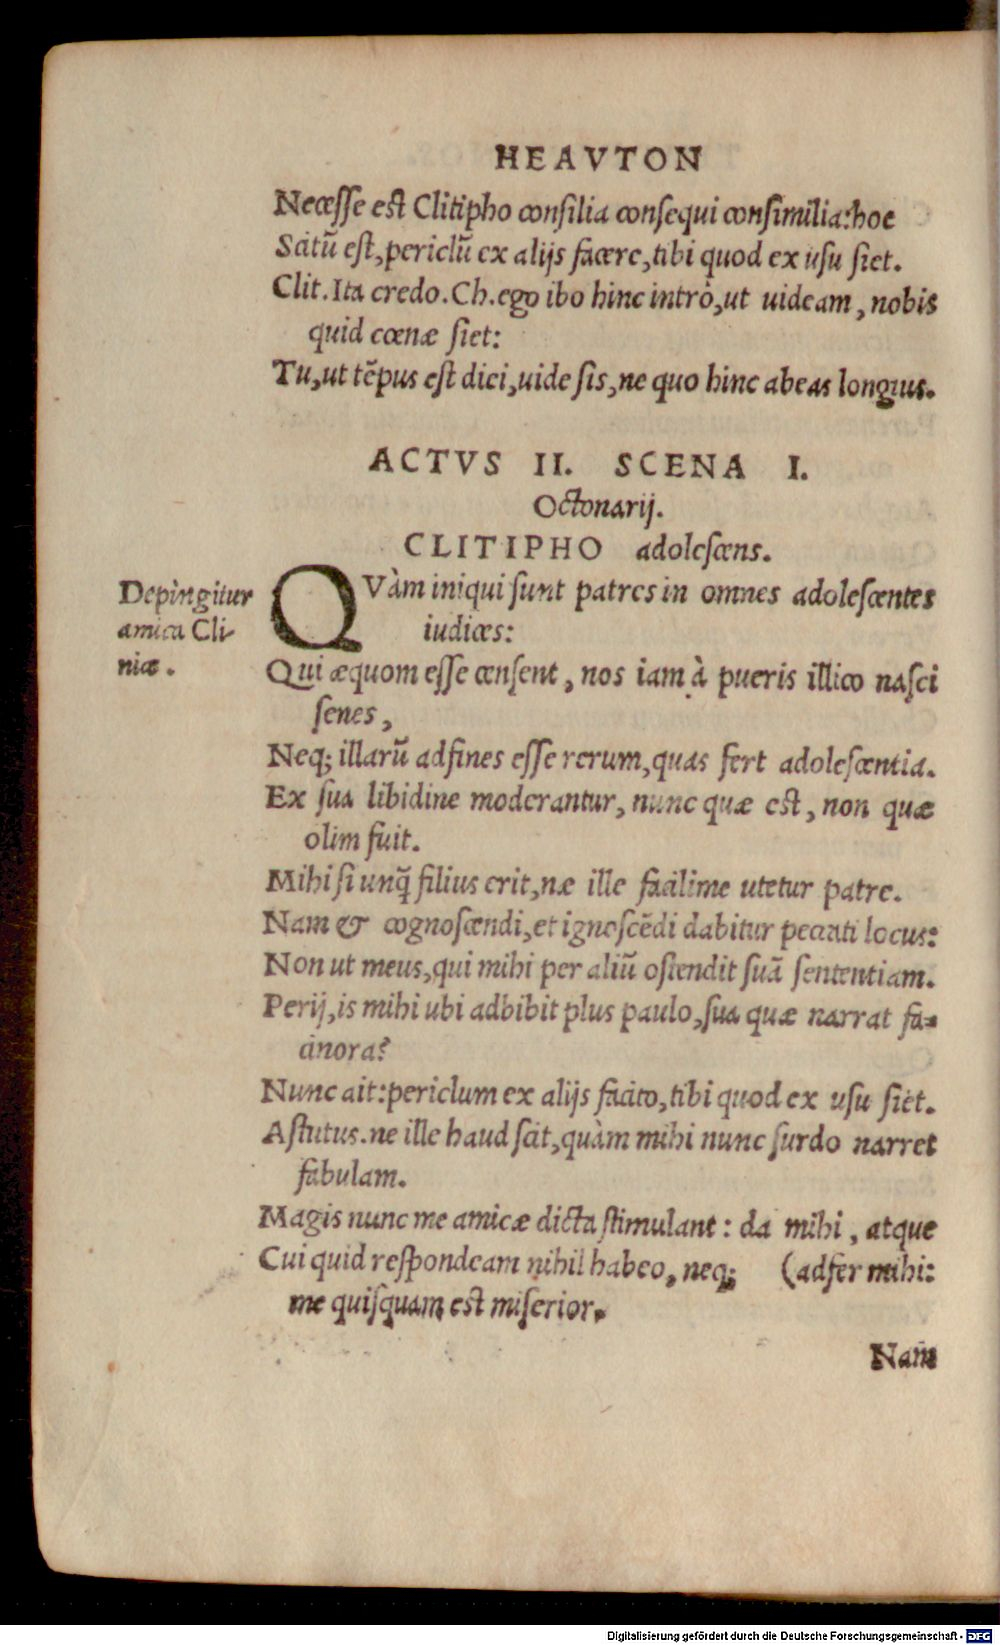 HEAVTON
Necesse est Clitipho consilia consequi consimilia: hoc
Scitũ est, periclũ ex alijs facere, tibi quod ex usu siet.
Clit. Ita credo. Ch. ego ibo hinc intrò, ut uideam, nobis
quid cœnæ siet:
Tu, ut tẽpus est diei, uide sis, ne quo hinc abeas longius.
ACTVS II. SCENA I.
Octonarij.
CLITIPHO adolescens.
Depingitur
amica Cli-
niæ.
QVàm iniqui sunt patres in omnes adolescentes
iudices:
Qui æquom esse censent, nos iam à pueris illico nasci
senes,
Neq; illarũ adfines esse rerum, quas fert adolescentia.
Ex sua libidine moderantur, nunc quæ est, non quæ
olim fuit.
Mihi si unq̃ filius erit, næ ille facilime utetur patre.
Nam & cognoscendi, et ignoscẽdi dabitur peccati locus:
Non ut meus, qui mihi per aliũ ostendit suã sententiam.
Perij, is mihi ubi adbibit plus paulo, sua quæ narrat fa-
cinora?
Nunc ait: periclum ex alijs facito, tibi quod ex usu siet.
Astutus. ne ille haud scit, quàm mihi nunc surdo narret
fabulam.
Magis nunc me amicæ dicta stimulant: da mihi, atque
Cui quid respondeam nihil habeo, neq; (adfer mihi:
me quisquam est miserior.
Nam
Digitalisierung gefördert durch die Deutsche Forschungsgemeinschaft - DFG